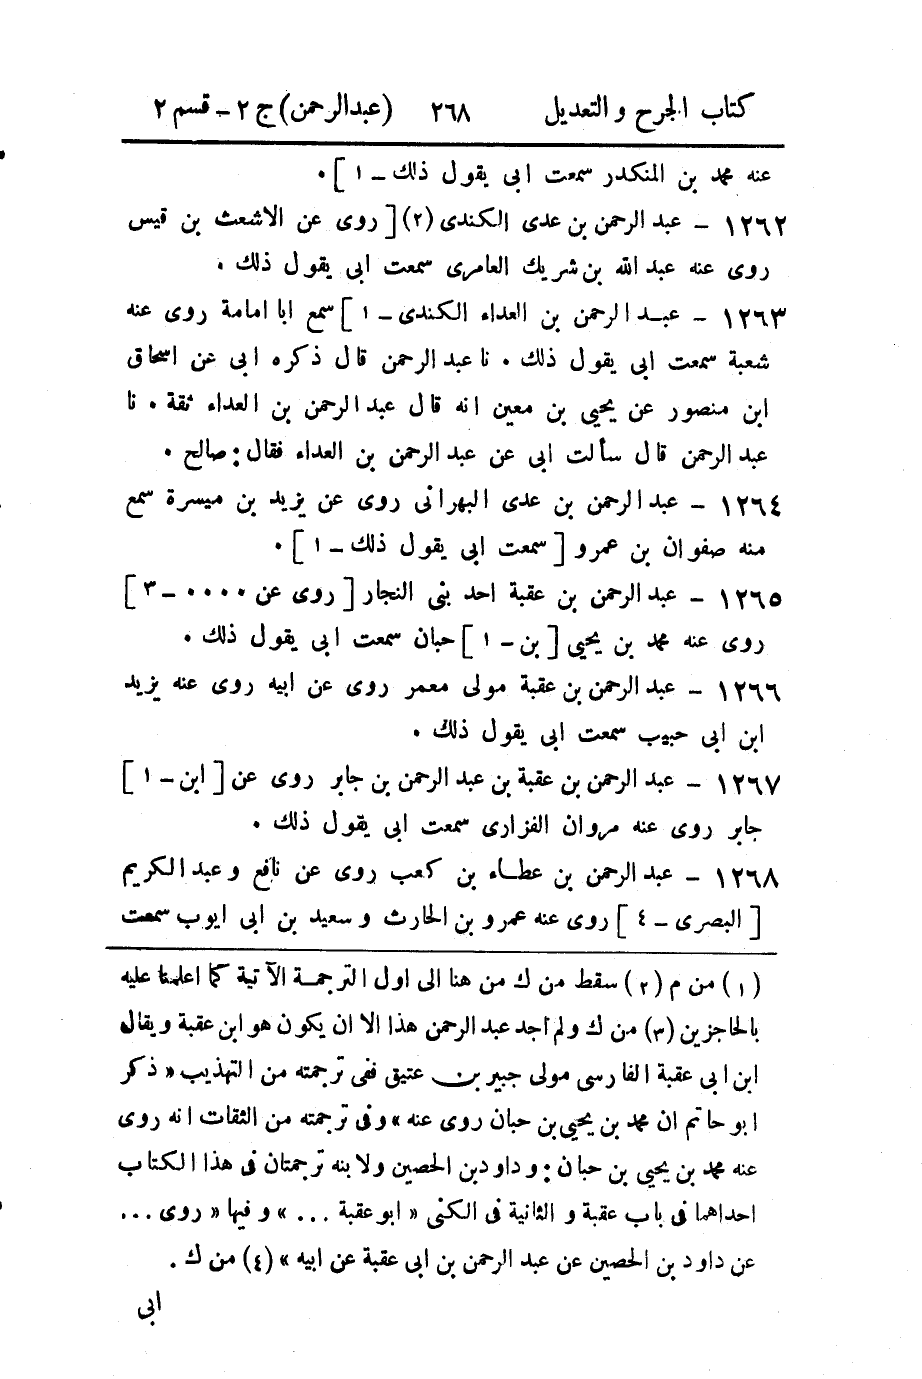 كتاب الجرح و التعديل ٢٦٨ (عبدالرحمن) ج ٢ - قسم ٢
عنه محمد بن المنكدر سمعت ابى يقول ذلك - ١ ] .
١٢٦٢ - عبد الرحمن بن عدى الكندى (٢) [ روى عن الاشعث بن قيس
روى عنه عبد الله بن شريك العامرى سمعت ابى يقول ذلك .
١٢٦٣ - عبد الرحمن بن العداء الكندى - ١ ] سمع ابا امامة روى عنه
شعبة سمعت ابى يقول ذلك . نا عبد الرحمن قال ذكره ابى عن اسحاق
ابن منصور عن يحيى بن معين انه قال عبد الرحمن بن العداء ثقة . نا
عبد الرحمن قال سألت ابى عن عبد الرحمن بن العداء فقال : صالح .
١٢٦٤ - عبد الرحمن بن عدى البهرانى روى عن يزيد بن ميسرة سمع
منه صفوان بن عمرو [ سمعت ابى يقول ذلك - ١ ] .
١٢٦٥ - عبد الرحمن بن عقبة احد بنى النجار [ روى عن ٠٠٠٠ - ٣ ]
روى عنه محمد بن يحيى [ بن - ١ ] حبان سمعت ابى يقول ذلك .
١٢٦٦ - عبد الرحمن بن عقبة مولى معمر روى عن ابيه روى عنه يزيد
ابن ابى حبيب سمعت ابى يقول ذلك .
١٢٦٧ - عبد الرحمن بن عقبة بن عبد الرحمن بن جابر روى عن [ ابن - ١ ]
جابر روى عنه مروان الفزارى سمعت ابى يقول ذلك .
١٢٦٨ - عبد الرحمن بن عطاء بن كعب روى عن نافع و عبد الكريم
[ البصرى - ٤ ] روى عنه عمرو بن الحارث و سعيد بن ابى ايوب سمعت
(١) من م (٢) سقط من ك من هنا الى اول الترجمة الآتية كما اعلمنا عليه
بالحاجزين (٣) من ك ولم أجد عبد الرحمن هذا الا ان يكون هو ابن عقبة ويقال
ابن ابى عقبة الفارسى مولى جبير بن عتيق ففى ترجمته من التهذيب « ذكر
ابو حاتم ان محمد بن يحيى بن حبان روى عنه » وفى ترجمته من الثقات انه روى
عنه محمد بن يحيى بن حبان : و داود بن الحصين ولابنه ترجمتان فى هذا الكتاب
احداهما فى باب عقبة و الثانية فى الكنى « ابو عقبة ... » و فيها « روى ...
عن داود بن الحصين عن عبد الرحمن بن ابى عقبة عن ابيه » (٤) من ك .
ابى